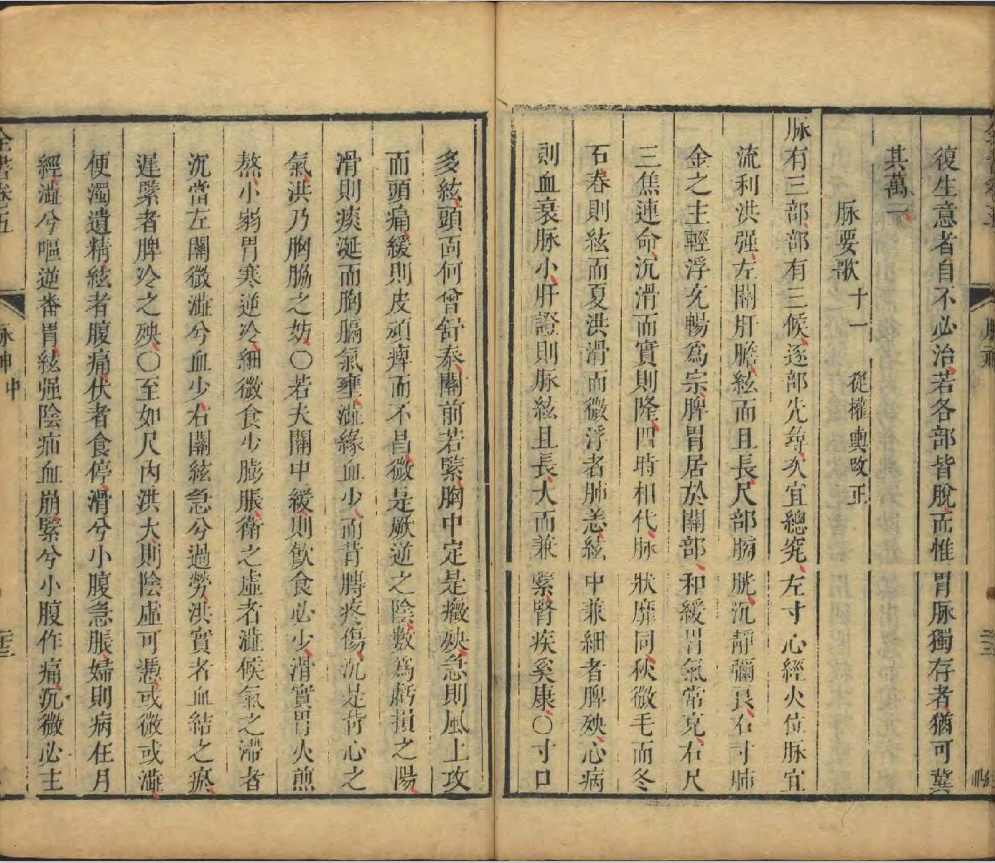 復生意者自不必治若各部皆脫而惟胃脉獨存者猶可冀
其萬一
脉要歌 十一 從權輿改正
脉有三部部有三候逐部先尋次宜總究左寸心經火位脉宜
流利洪强左關肝膽弦而且長尺部膀胱沉靜彌良右寸肺
金之主輕浮充暢為宗脾胃居於關部和緩胃氣常充右尺
三焦連命沉滑而實則隆四時相代脉狀靡同秋微毛而冬
石春則絃而夏洪滑而微浮者肺恙絃中兼細者脾殃心病
則血衰脉小肝證則脉絃且長大而兼緊腎疾奚康○寸口
多絃頭面何曾舒泰關前若緊胸中定是癥殃急則風上攻
而頭痛緩則皮頑痺而不昌微是厥逆之陰數為虧損之陽
滑則痰涎而胸膈氣壅澁緣血少而背膊疼傷沉是背心之
氣洪乃胸脇之妨○若夫關中緩則飲食必少滑實胃火煎
熬小弱胃寒逆冷細微食少膨脹衛之虛者澁候氣之滯者
沉當左關微澁兮血少右關絃急兮過勞洪實者血結之瘀
遲緊者脾冷之殃○至如尺內洪大則陰虛可憑或微或澁
便濁遺精絃者腹痛伏者食停滑兮小腹急脹婦則病在月
經澁兮嘔逆番胃絃强陰疝血崩緊兮小腹作痛沉微必主
全書卷五
脉神中